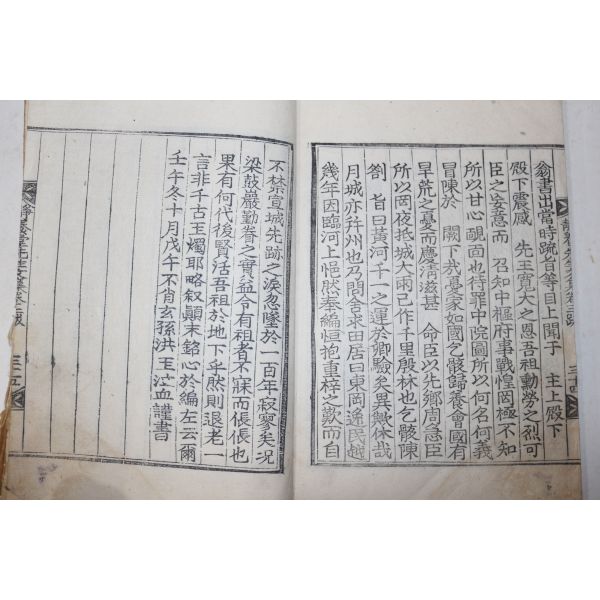 翁書出當時疏旨等目上聞子　主上殿下
殿下震慼　先王寬大之恩吾祖勤勞之烈可
臣之妄意而　召知中樞府事戰惶罔極不知
所以甘心靦面也待罪中院圖所以何名何義
冒陳於　闕下哉憂家如國乞骸歸養會國有
旱荒之憂而慶清滋甚　命臣以先鄉周急臣
所以罔夜抵城大雨已作千里殷林也乞骸陳
劄　旨曰黃河千一之運於卿驗矣異哉休哉
月城亦幷州也乃問舍求田居曰東岡逶民越
幾年因臨河上悒然奉編恒抱重梓之歎而自
不禁宣城先跡之淚忽墜於一百年寂寥矣况
梁鼓嚴勤眷之實益令有祖者不寐而悵悵也
果有何代後賢活吾祖於地下乎然則退老一
言非千古玉燭耶略叙顚末銘心於編左云爾
壬午冬十月戊午不肖玄孫洪
謹書